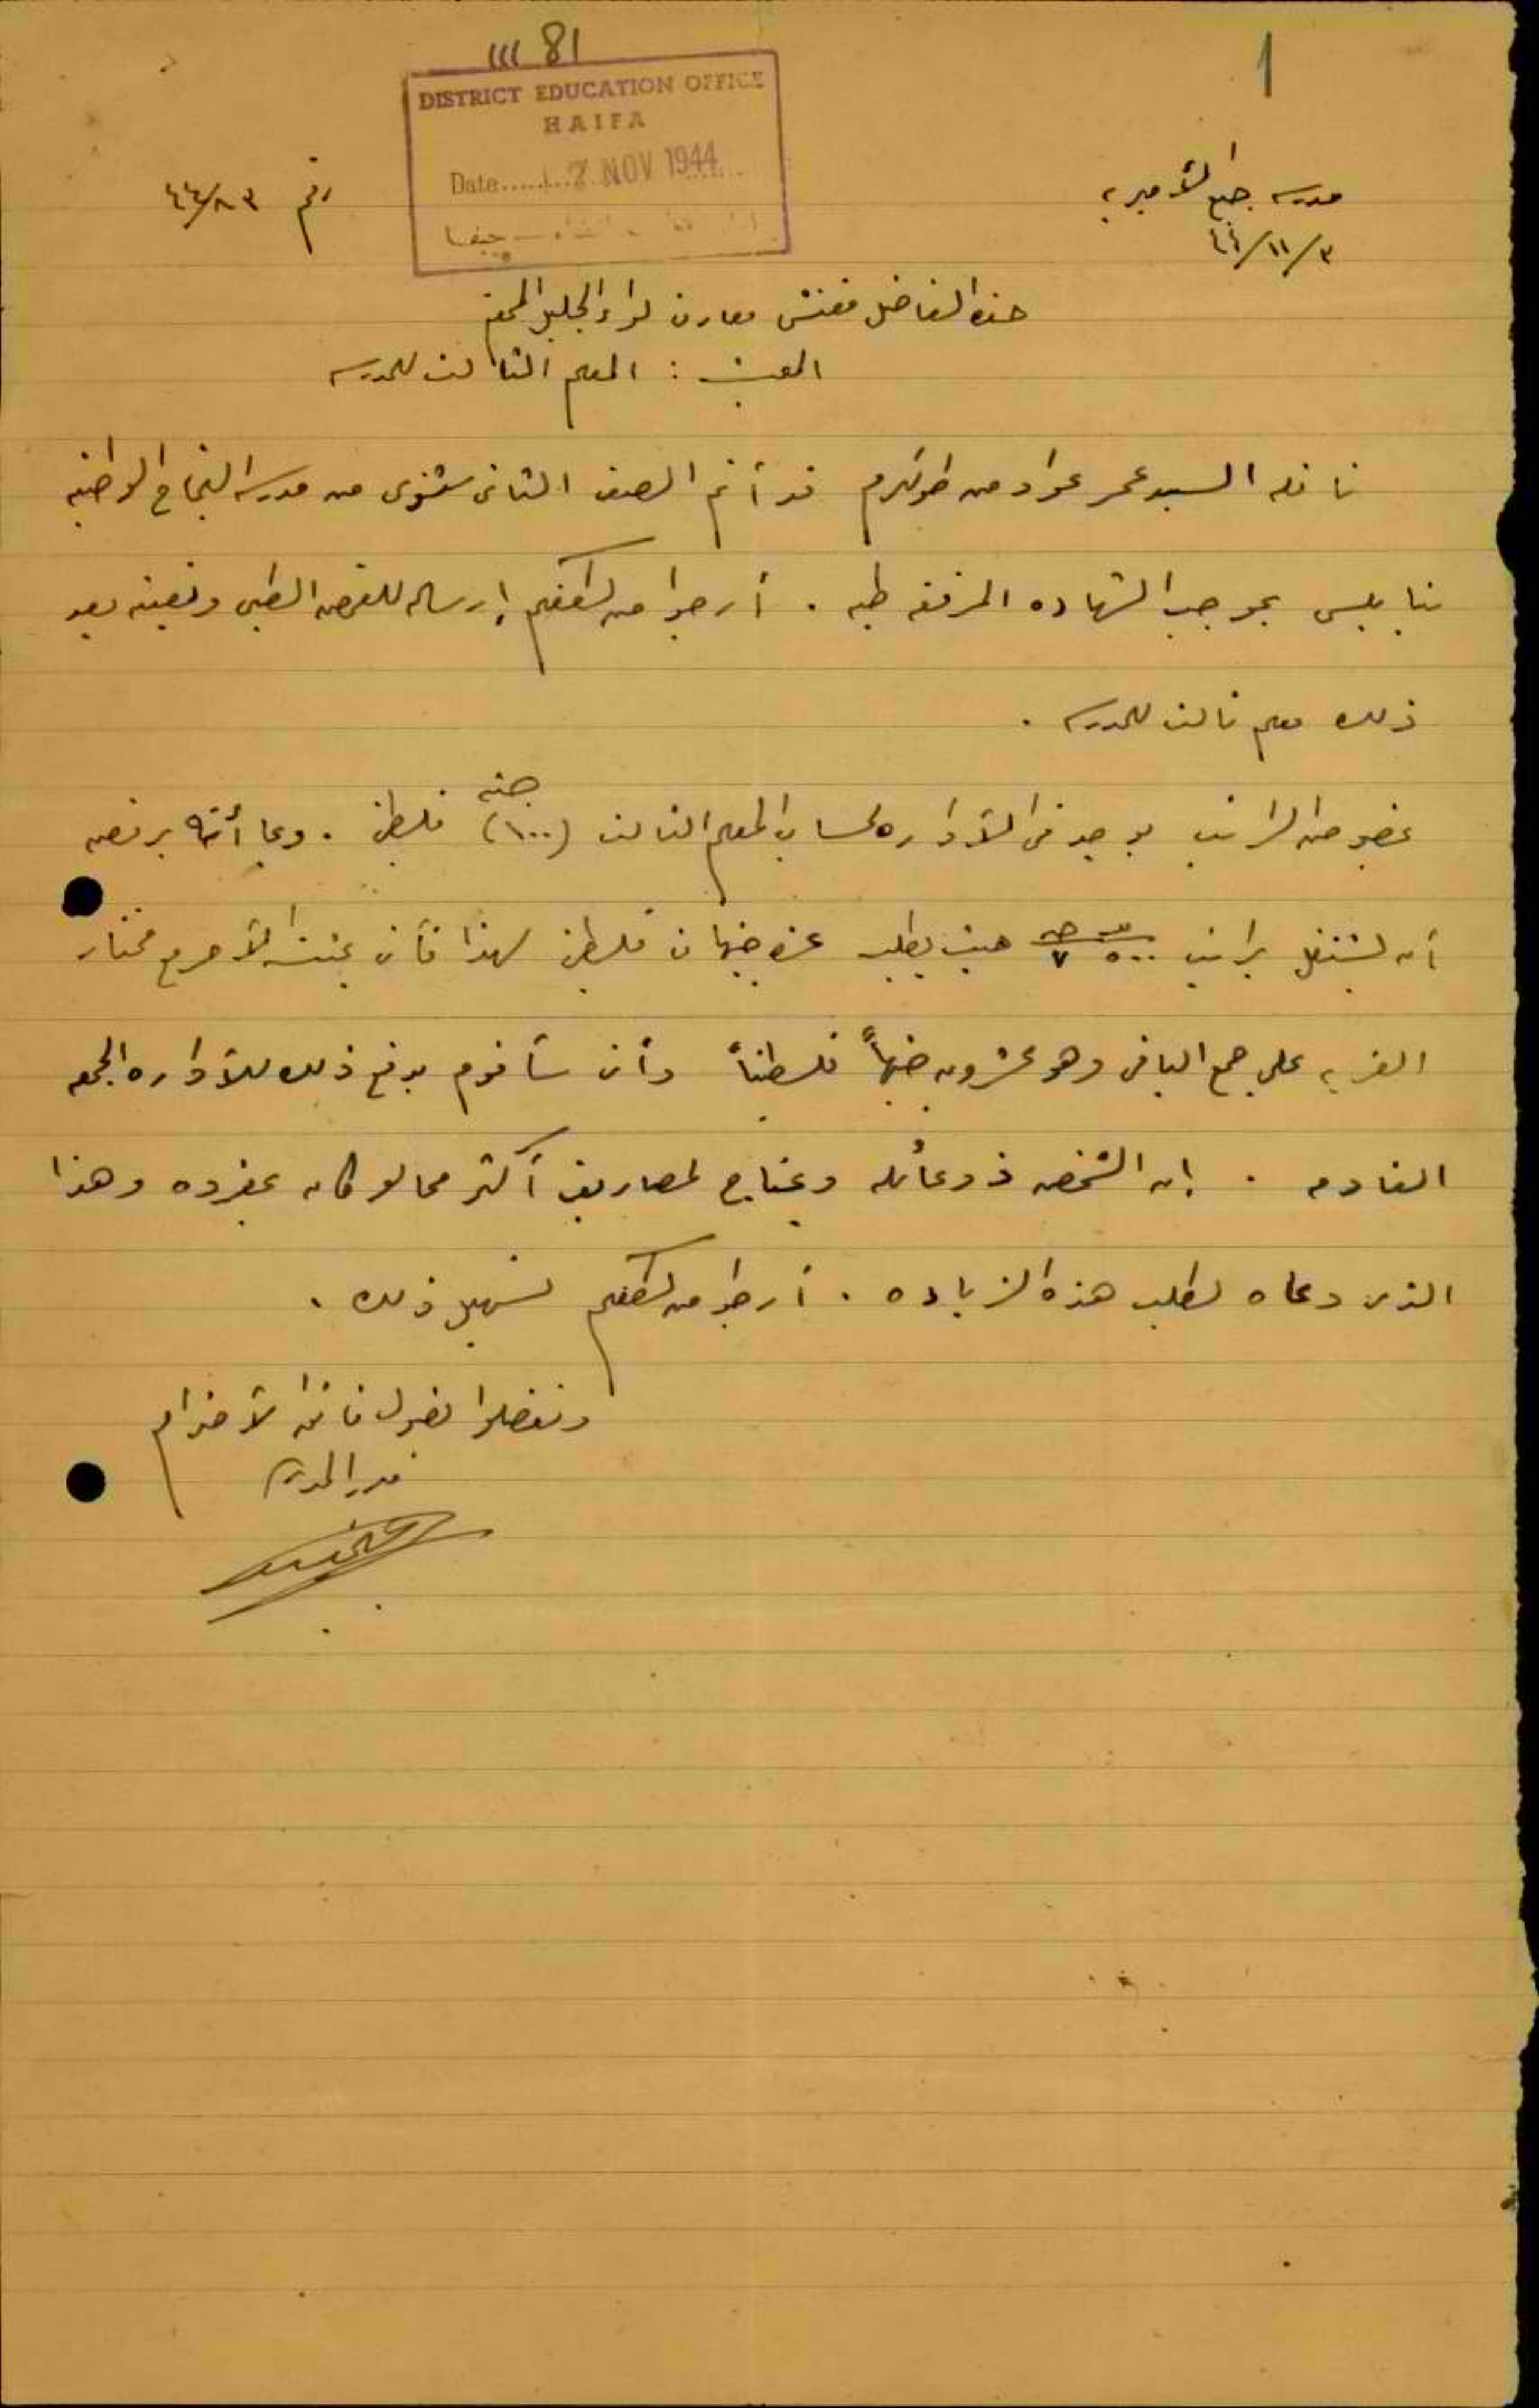 1
III 81
DISTRICT EDUCATION OFFICE
HAIFA
Date 7 NOV 1944
حيفا
مدرسة جبع الأميرية
رقم ٤٤/٨٣
٤٤/١١/٣
حضرة الفاضل مفتش معارف لواء الجليل المحترم
المبحث : المعلم الثالث للمدرسه
ناقله السيد عمر عواد من طولكرم قد أتم الصف الثاني ثنوي من مدرسة النجاح الوطنيه
بنابلس بموجب الشهاده المرفقه طيه . أرجوا من لطفكم إرساله للفحص الطبي وتعيينه بعد
ذلك معلم ثالث للمدرسه .
بخصوص الراتب يوجد في الأداره لحساب المعلم الثالث (١٠٠) جنيه فلسطيني . وبما أنه يرفض
أن يشتغل براتب ٥٠٠ ٧ حيث يطلب عشر جنيهات فلسطيني لهذا فأني بحثت الأمر مع مختار
القريه على جمع الباقي وهو عشرون جنيهاً فلسطينياً وأني سأقوم بدفع ذلك للأداره الجمعه
القادمه . إن الشخص ذو عائله ويحتاج لمصاريف أكثر مما لو كان بمفرده وهذا
الذي دعاه لطلب هذه الزياده . أرجو من لطفكم تسهيل ذلك .
وتفضلوا بقبول فائق الأحترام
مدير المدرسة